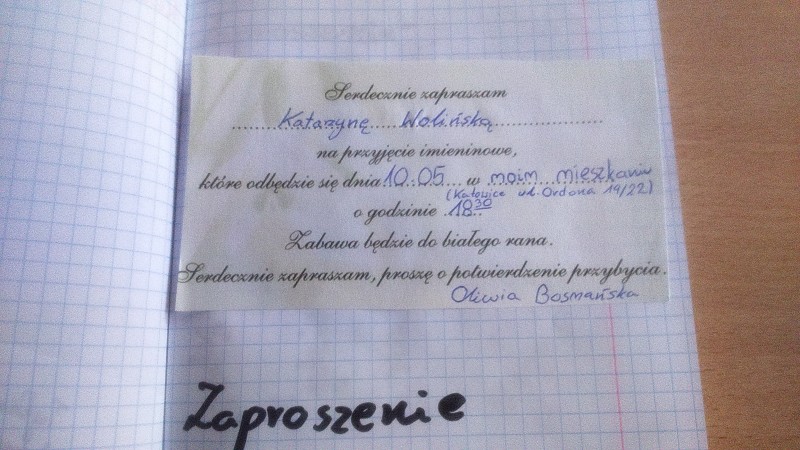 Serdecznie zapraszam
Katarzynę Wolińską
na przyjęcie imieninowe,
które odbędzie się dnia 10.05 w moim mieszkaniu
(Katowice ul. Ordona 19/22)
o godzinie 18³⁰
Zabawa będzie do białego rana.
Serdecznie zapraszam, proszę o potwierdzenie przybycia.
Oliwia Bosmańska
Zaproszenie